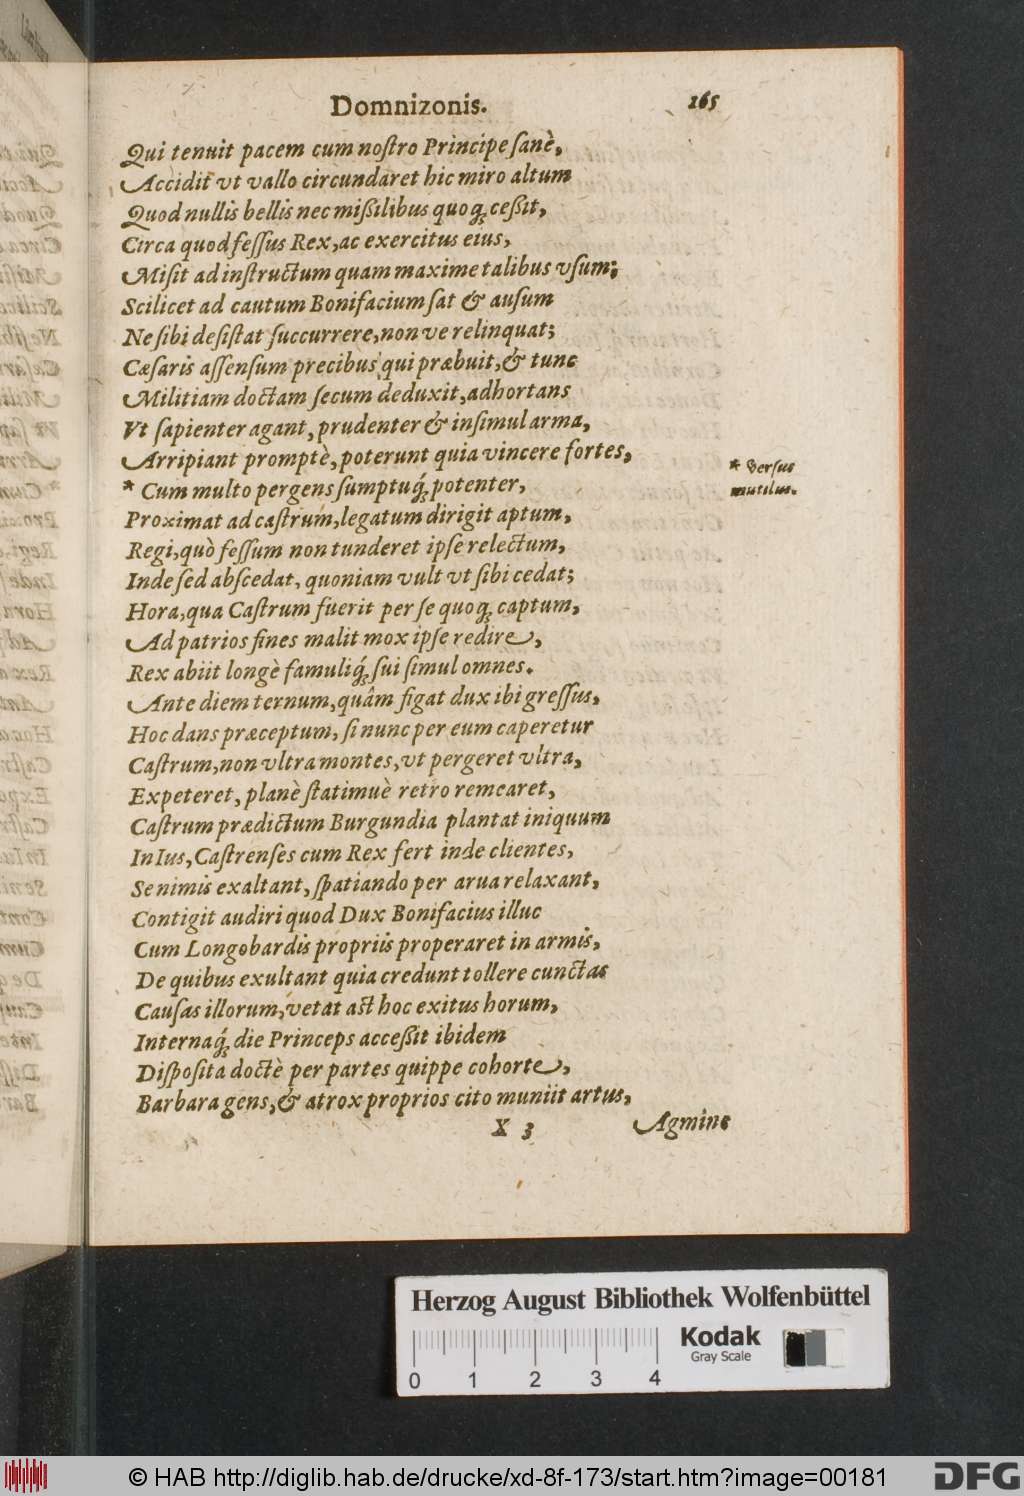 Domnizonis. 165
Qui tenuit pacem cum noſtro Principe ſanè,
Accidit vt vallo circundaret hic miro altum
Quod nullis bellis nec mißilibus quoq; ceßit,
Circa quod feſſus Rex, ac exercitus eius,
Miſit ad inſtructum quam maxime talibus vſum;
Scilicet ad cautum Bonifacium ſat & auſum
Ne ſibi deſiſtat ſuccurrere, non ve relinquat;
Cæſaris aſſenſum precibus qui præbuit, & tunc
Militiam doctam ſecum deduxit, adhortans
Vt ſapienter agant, prudenter & inſimul arma,
Arripiant promptè, poterunt quia vincere fortes,
* Cum multo pergens ſumptuq́; potenter,
* Verſus
mutilus.
Proximat ad caſtrum, legatum dirigit aptum,
Regi, quò feſſum non tunderet ipſe relectum,
Inde ſed abſcedat, quoniam vult vt ſibi cedat;
Hora, qua Caſtrum fuerit per ſe quoq; captum,
Ad patrios fines malit mox ipſe redire,
Rex abiit longè famuliq́; ſui ſimul omnes.
Ante diem ternum, quâm figat dux ibi greſſus,
Hoc dans præceptum, ſi nunc per eum caperetur
Caſtrum, non vltra montes, vt pergeret vltra,
Expeteret, planè ſtatimuè retro remearet,
Caſtrum prædictum Burgundia plantat iniquum
In Ius, Caſtrenſes cum Rex fert inde clientes,
Se nimis exaltant, ſpatiando per arua relaxant,
Contigit audiri quod Dux Bonifacius illuc
Cum Longobardis propriis properaret in armis,
De quibus exultant quia credunt tollere cunctas
Cauſas illorum, vetat aſt hoc exitus horum,
Internaq́; die Princeps acceßit ibidem
Diſpoſita doctè per partes quippe cohorte,
Barbara gens, & atrox proprios cito muniit artus,
X 3 Agmine
Herzog August Bibliothek Wolfenbüttel
Kodak
Gray Scale
0 1 2 3 4
© HAB http://diglib.hab.de/drucke/xd-8f-173/start.htm?image=00181
DFG